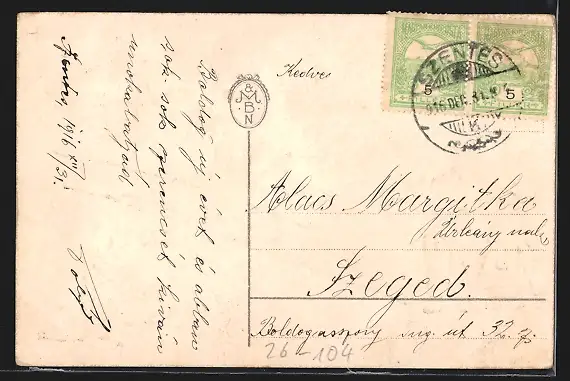 Szentes, 1916 XII/31.
Boldog új évet és abban
sok sok szerencsét kíván
unokabátyád
M.M.
B
N
SZENTES
916 DEC. 31.
5
5
Kedves
Alacs Margitka
Úrleány nak
Szeged.
Boldogasszony sug. út 32. sz.
26-104